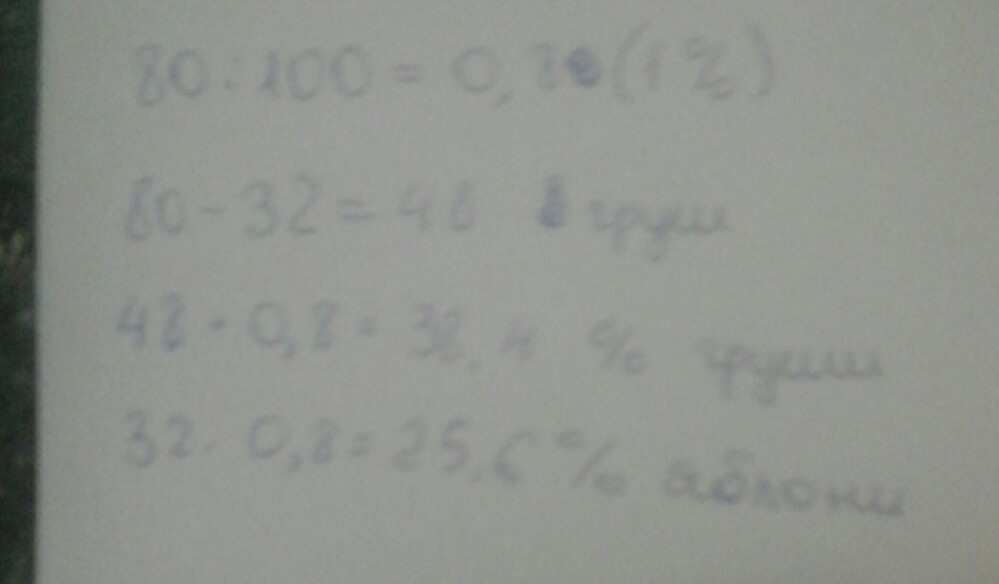 80:100=0,8 (1%)
80-32=48 груш
48·0,8=38,4 % груши
32·0,8=25,6% яблони